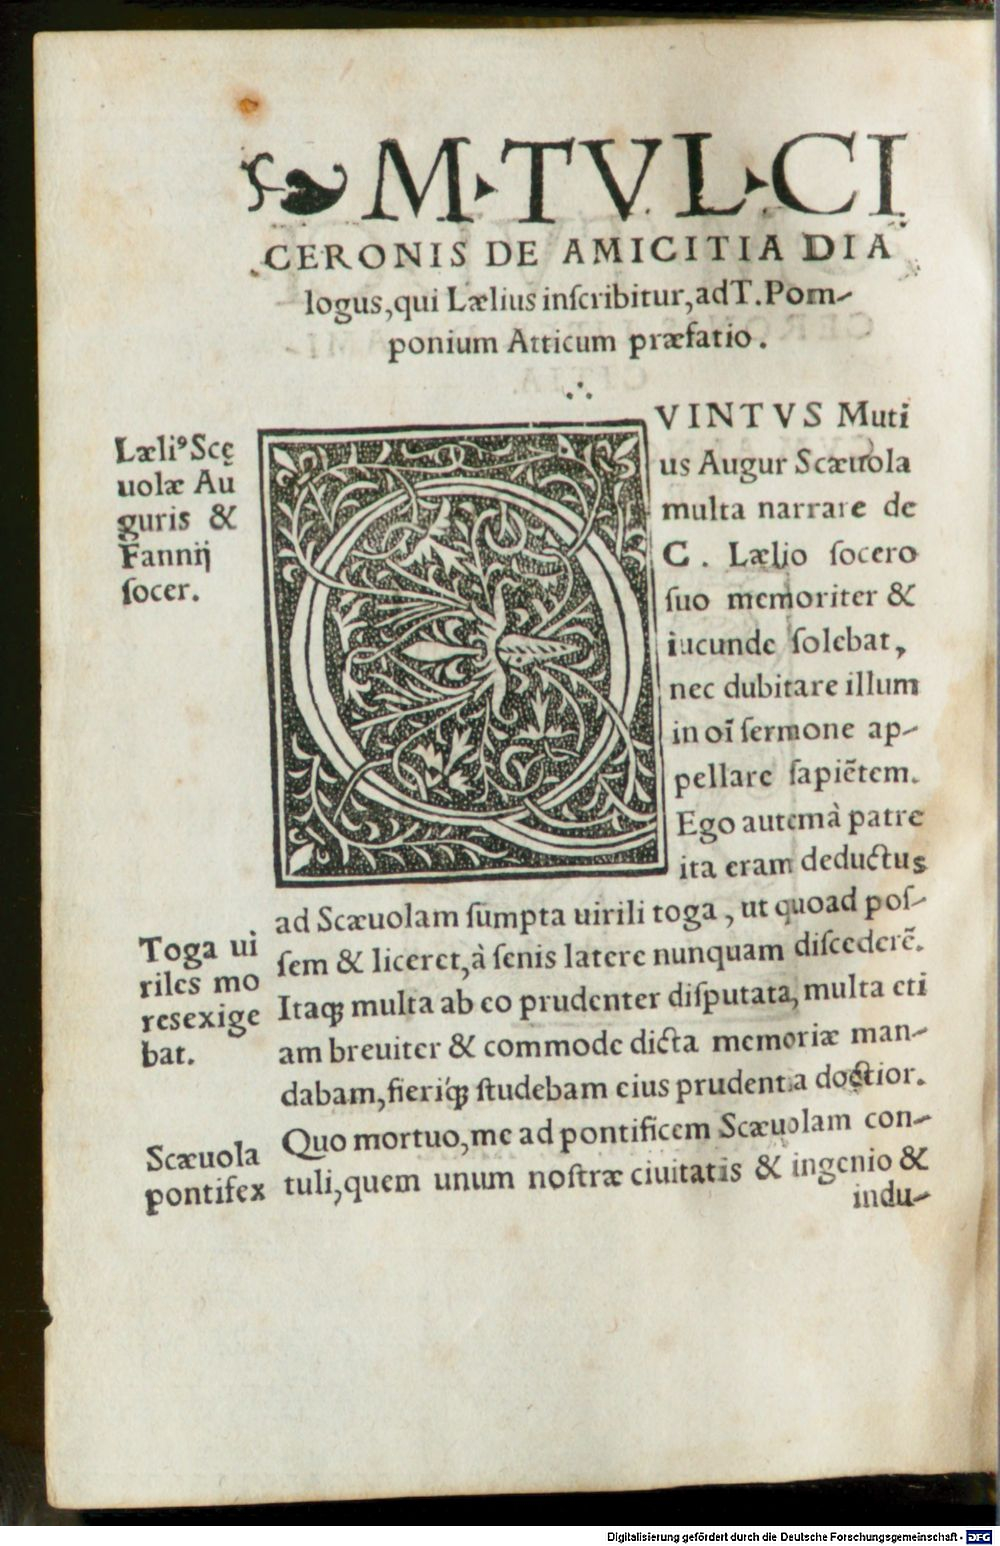 M·TVL·CI
CERONIS DE AMICITIA DIA
logus,qui Lælius inſcribitur,adT.Pom-
ponium Atticum præfatio.
Læliꝰ Scę
uolæ Au
guris &
Fannij
ſocer.
QVINTVS Muti
us Augur Scæuola
multa narrare de
C. Lælio ſocero
ſuo memoriter &
iucunde ſolebat,
nec dubitare illum
in oī ſermone ap-
pellare ſapiētem.
Ego autemà patre
ita eram deductus
ad Scæuolam ſumpta uirili toga, ut quoad poſ-
ſem & liceret,à ſenis latere nunquam diſcederē.
Toga ui
riles mo
resexige
bat.
Itaꝗ multa ab eo prudenter diſputata, multa eti
am breuiter & commode dicta memoriæ man-
dabam,fieriꝗ́ ſtudebam eius prudentia doctior.
Scæuola
pontifex
Quo mortuo,me ad pontificem Scæuolam con-
tuli,quem unum noſtræ ciuitatis & ingenio &
indu-
Digitalisierung gefördert durch die Deutsche Forschungsgemeinschaft - DFG